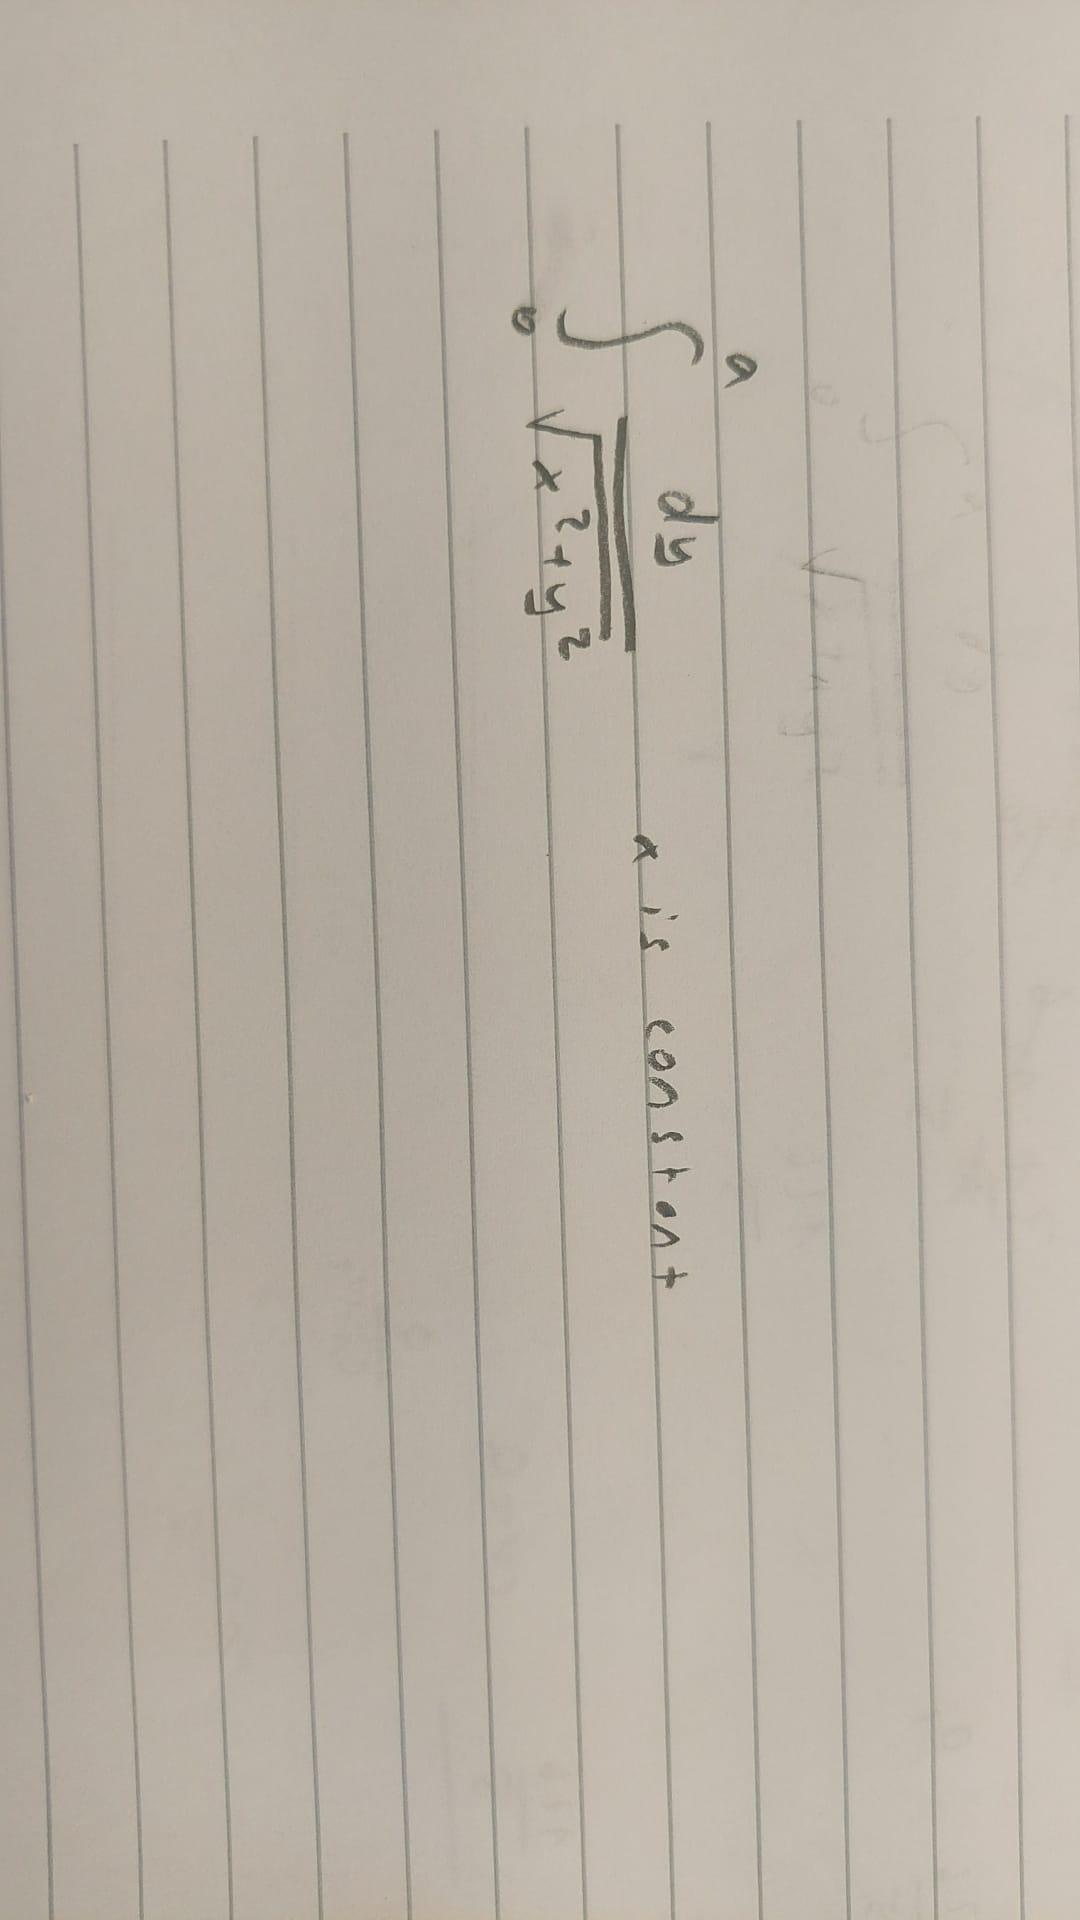 ∫₀ᵃ dy / √(x² + y²) x is constant